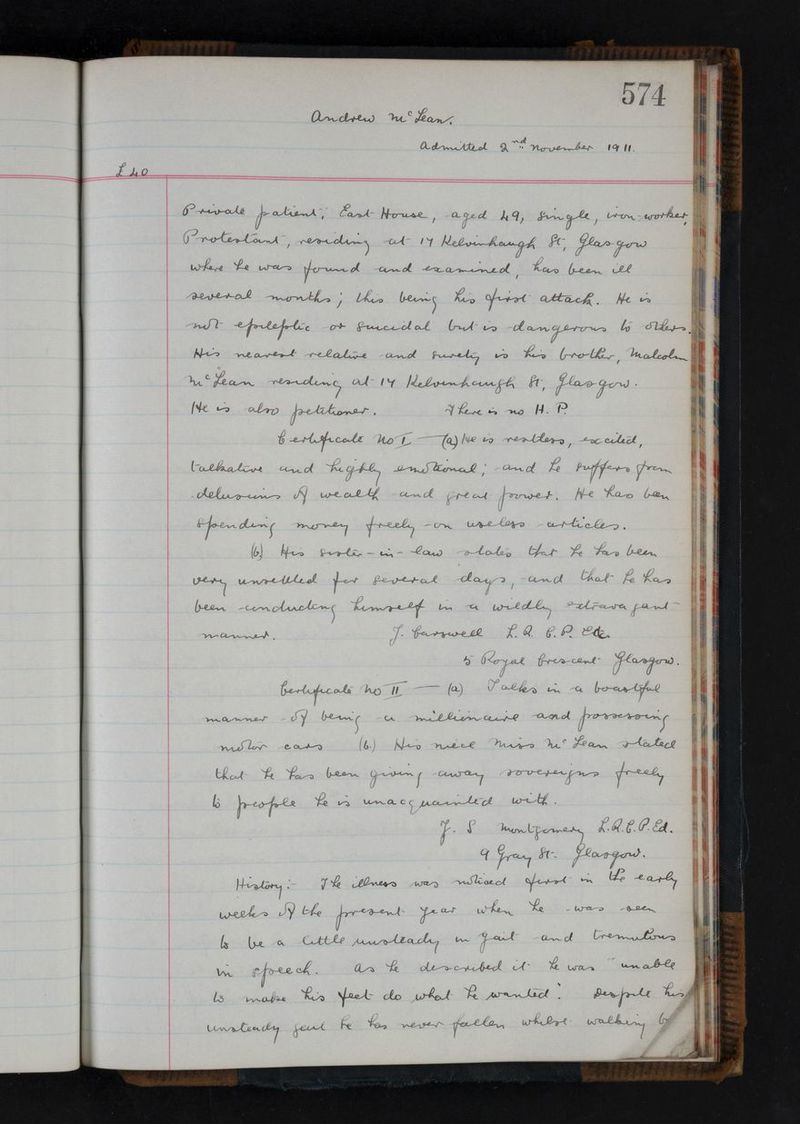 574
Andrew McLean.
Admitted 2nd November 1911.
£40
Private patient, East House, aged 49, single, iron-worker,
Protestant, residing at 14 Kelvinhaugh St, Glasgow
where he was found and examined, has been ill
several months; this being his first attack. He is
not epileptic or suicidal but is dangerous to others.
His nearest relative and surety is his brother, Malcolm
McLean residing at 14 Kelvinhaugh St, Glasgow.
He is also petitioner. There is no H. P.
Certificate No I — (a) He is restless, excited,
talkative and highly emotional; and he suffers from
delusions of wealth and great power. He has been
spending money freely on useless articles.
(b) His sister-in-law states that he has been
very unsettled for several days, and that he has
been conducting himself in a wildly extravagant
manner. J. Carswell L.R.C.P. Ed.
5 Royal Crescent Glasgow.
Certificate No II — (a) Talks in a boastful
manner of being a millionaire and possessing
motor cars (b.) His niece Miss McLean stated
that he has been giving away sovereigns freely
to people he is unacquainted with.
J. S Montgomery L.R.C.P. Ed.
9 Gray St. Glasgow.
History:- The illness was noticed first in the early
weeks of the present year when he was seen
to be a little unsteady in gait and tremulous
in speech. As he described it he was "unable
to make his feet do what he wanted". Despite his
unsteady gait he has never fallen whilst walking